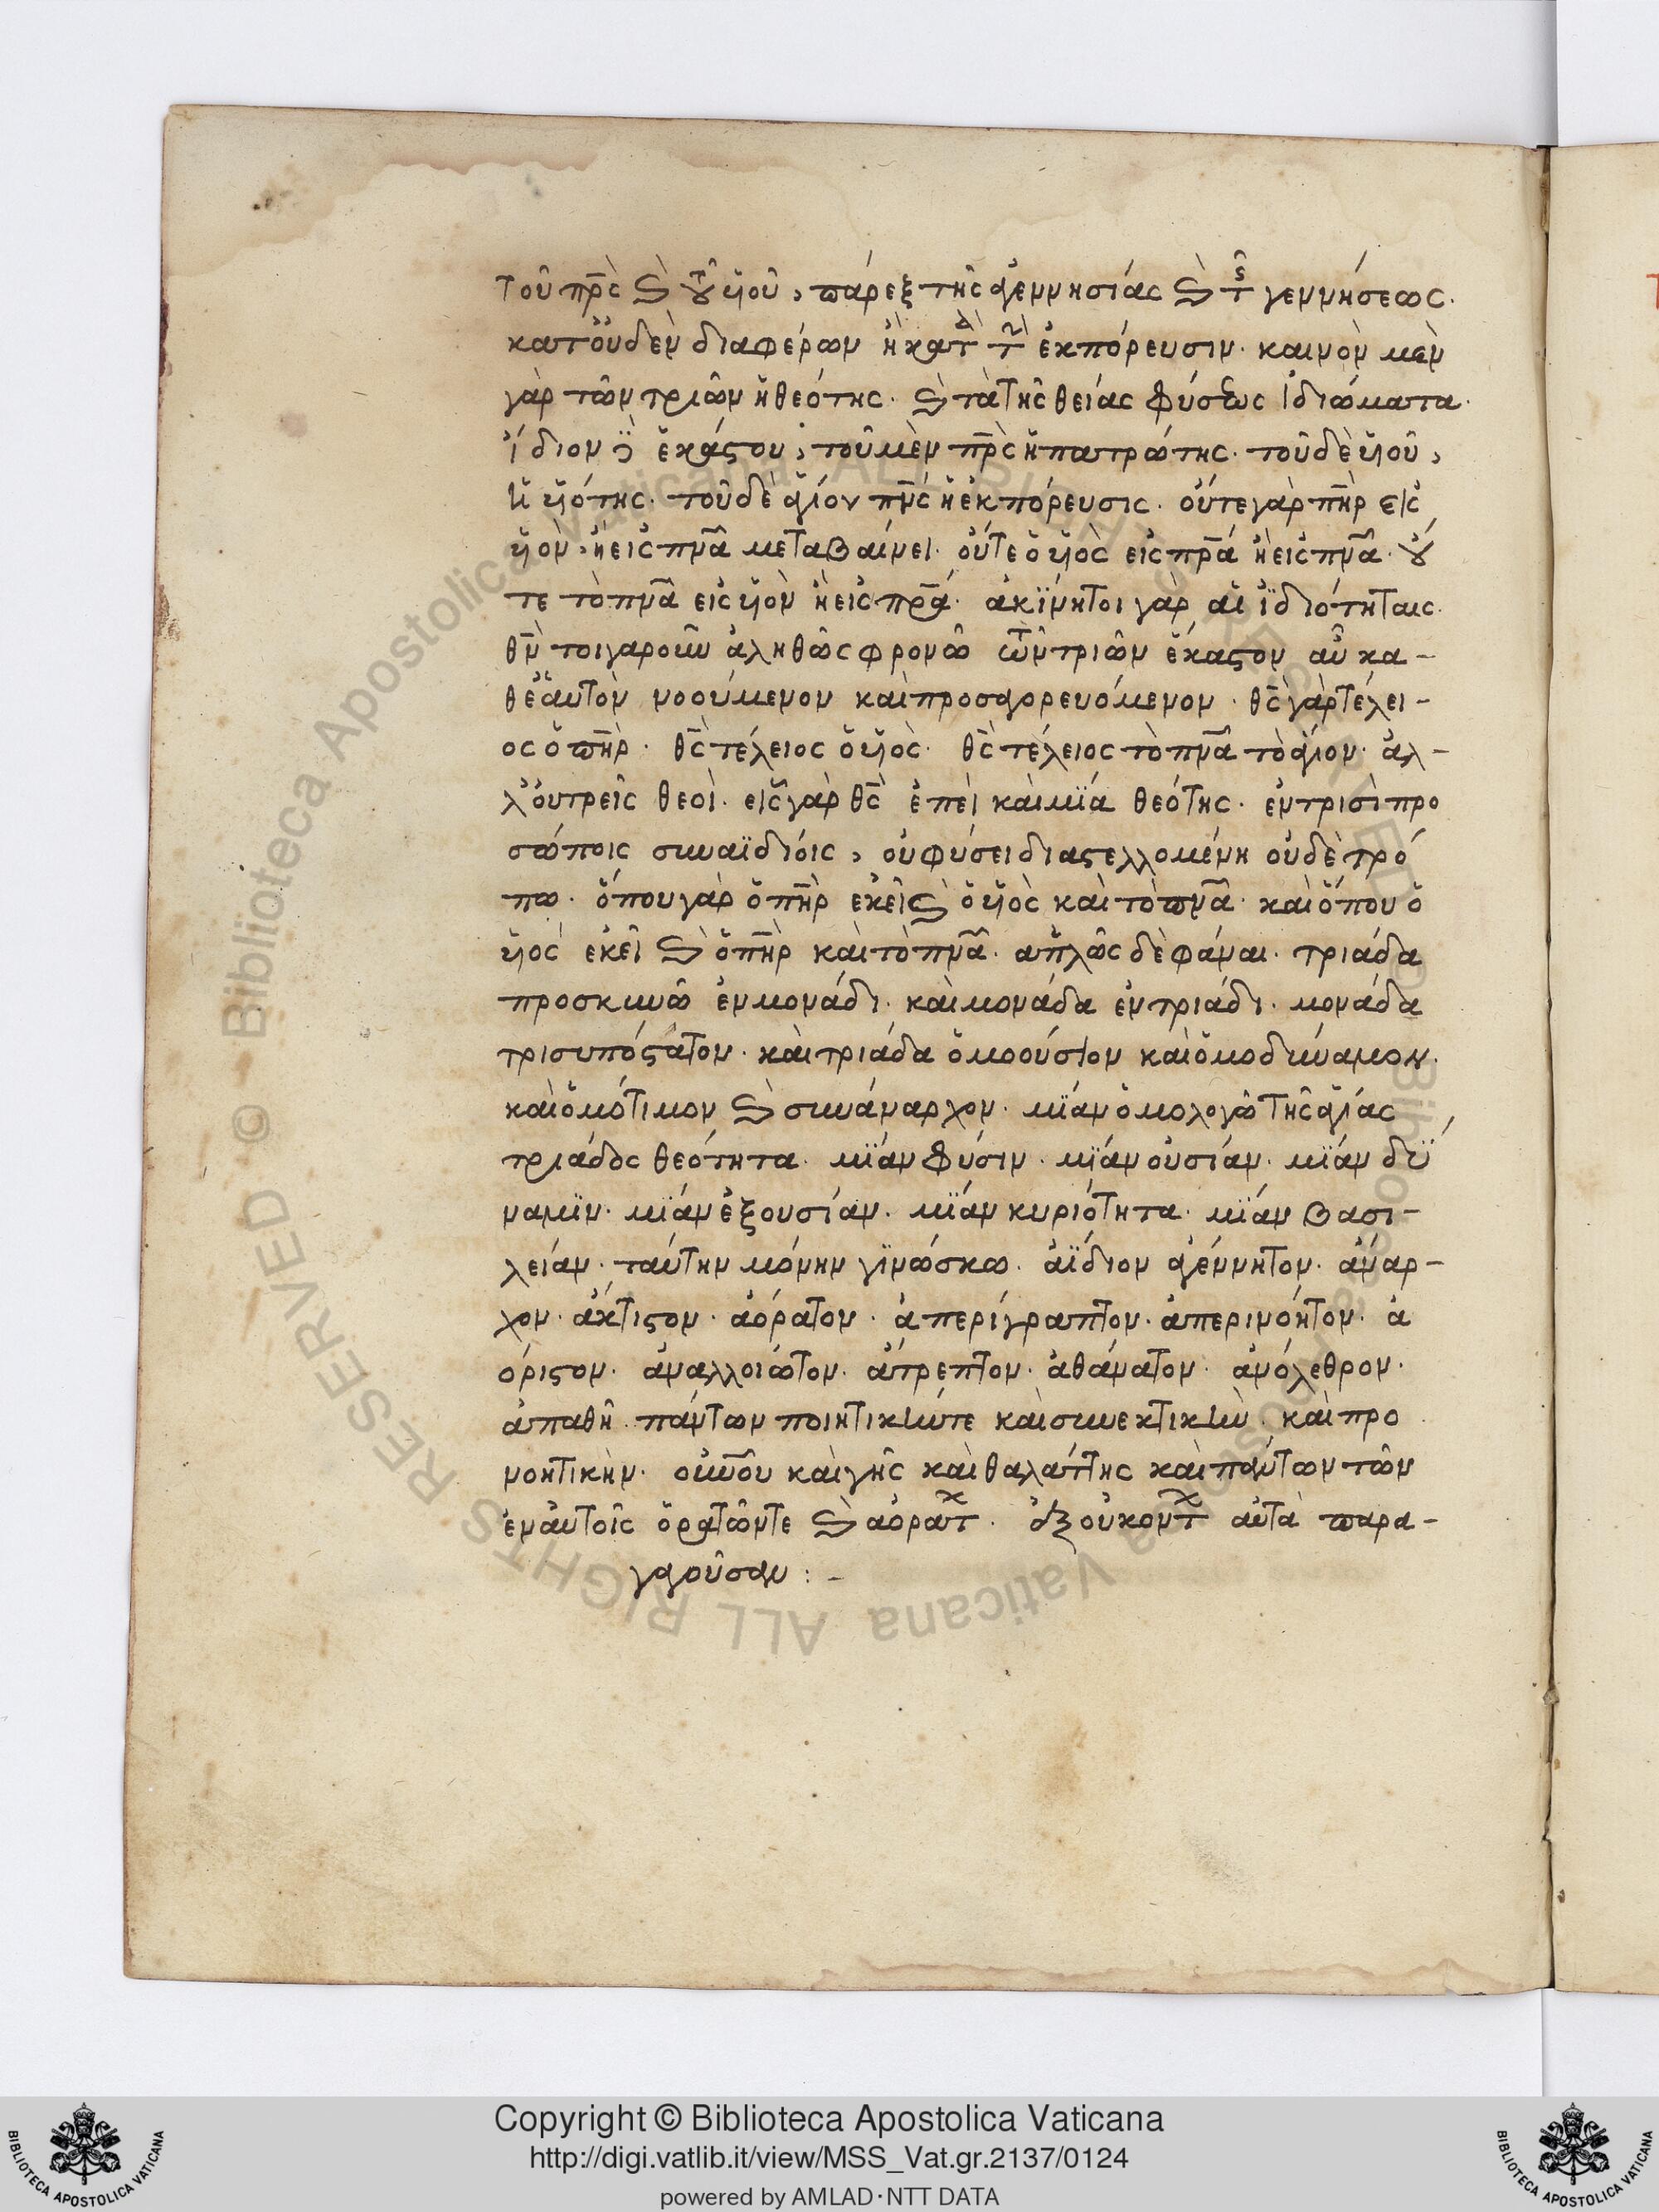 τοῦ πρς καὶ τοῦ υἱοῦ, πάρεξ τῆς ἀγεννησίας καὶ τῆς γεννήσεως.
κατ' οὐδὲν διαφέρων ἢ κατὰ τὴν ἐκπόρευσιν. κοινὸν μὲν
γὰρ τῶν τριῶν ἡ θεότης. καὶ τὰ τῆς θείας φύσεως ἰδιώματα.
ἴδιον δὲ ἑκάστου, τοῦ μὲν πρς ἡ πατρώτης. τοῦ δὲ υἱοῦ,
ἡ υἱότης. τοῦ δὲ ἁγίου πνς ἡ ἐκπόρευσις. οὔτε γὰρ πηρ εἰς
υἱὸν, ἢ εἰς πνα μεταβαίνει. οὔτε ὁ υἱὸς εἰς πρα ἢ εἰς πνα. οὔ
τε τὸ πνα εἰς υἱὸν ἢ εἰς πρα. ἀκΐνητοι γὰρ αἱ ἰδιότηταις.
θν τοιγαροῦν ἀληθῶς φρονῶ τῶν τριῶν ἕκαστον αὖ κα-
θ' ἑαυτὸν νοούμενον καὶ προσαγορευόμενον. θς γὰρ τέλει-
ος ὁ πηρ. θς τέλειος ὁ υἱὸς. θς τέλειος τὸ πνα τὸ ἅγιον. ἀλ-
λ' οὐ τρεῖς θεοὶ. εἷς γὰρ θς ἐπεὶ καὶ μΐα θεότης. ἐν τρισὶ προ
σώποις συναϊδίοις, οὐ φύσει διαστελλομένη οὐδὲ τρό
πω. ὅπου γὰρ ὁ πηρ ἐκεῖ καὶ ὁ υἱὸς καὶ τὸ πνα. καὶ ὅπου ὁ
υἱὸς ἐκεῖ καὶ ὁ πηρ καὶ τὸ πνα. ἁπλῶς δὲ φάναι. τριάδα
προσκυνῶ ἐν μονάδι. καὶ μονάδα ἐν τριάδι. μονάδα
τρισυπόστατον. καὶ τριάδα ὁμοούσιον καὶ ὁμοδύναμον.
καὶ ὁμότιμον καὶ συνάναρχον. μΐαν ὁμολογῶ τῆς ἁγίας
τριάδος θεότητα. μΐαν φύσιν. μΐαν οὐσίαν. μΐαν δϋ
ναμϊν. μΐαν ἐξουσίαν. μΐαν κυριότητα. μΐαν βασι-
λείαν. ταύτην μόνην γϊνώσκω. ἀΐδιον ἀγέννητον. ἄναρ-
χον. ἄκτιστον. ἀόρατον. ἀπερίγραπτον. ἀπερινόητον. ἀ
όριστον. ἀναλλοιώτον. ἄτρεπτον. ἀθάνατον. ἀνόλεθρον.
ἀπαθῆ. πάντων ποιητικήν τε καὶ συνεκτικὴν. καὶ προ
νοητικὴν. οὐνοῦ καὶ γῆς καὶ θαλάττης καὶ πάντων τῶν
ἐν αὐτοῖς ὁρατῶν τε καὶ ἀοράτων. ἐξ οὐκ ὄντων αὐτὰ παρα-
γαγοῦσαν :-
Copyright © Biblioteca Apostolica Vaticana
http://digi.vatlib.it/view/MSS_Vat.gr.2137/0124
powered by AMLAD·NTT DATA
BIBLIOTECA APOSTOLICA VATICANA
BIBLIOTECA APOSTOLICA VATICANA
© Biblioteca Apostolica Vaticana ALL RIGHTS RESERVED
© Biblioteca Apostolica Vaticana ALL RIGHTS RESERVED